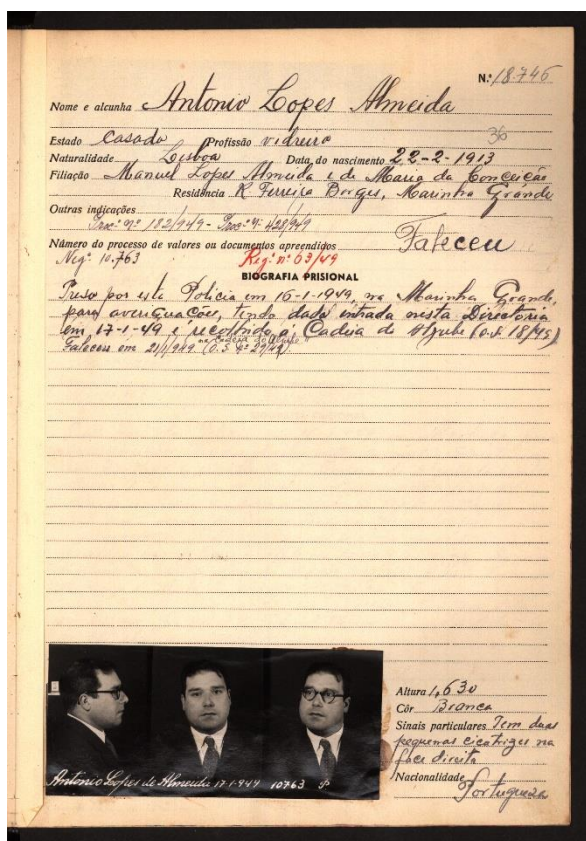 N.º 18.746
Nome e alcunha Antonio Lopes Almeida
36
Estado Casado Profissão vidreiro
Naturalidade Lisboa Data do nascimento 22-2-1913
Filiação Manuel Lopes Almeida e de Maria da Conceição
Residência R Ferreira Borges, Marinha Grande
Outras indicações
Proc.º nº 182/949 - Proc.º nº 428/949
Número do processo de valores ou documentos apreendidos Faleceu
Neg.º 10.763 Reg.º nº 63/49
BIOGRAFIA PRISIONAL
Preso por esta Policia em 16-1-1949, na Marinha Grande,
para averiguações, tendo dado entrada nesta Directoria
em 17-1-49 e recolhido á Cadeia do Aljube (O.S 18/49)
Faleceu em 21/1/949 na Cadeia do Aljube (O.S. nº 29/49)
Altura 1,630
Côr Branca
Sinais particulares Tem duas
pequenas cicatrizes na
face direita
Nacionalidade
Portuguesa
Antonio Lopes de Almeida 17-1-949 10763